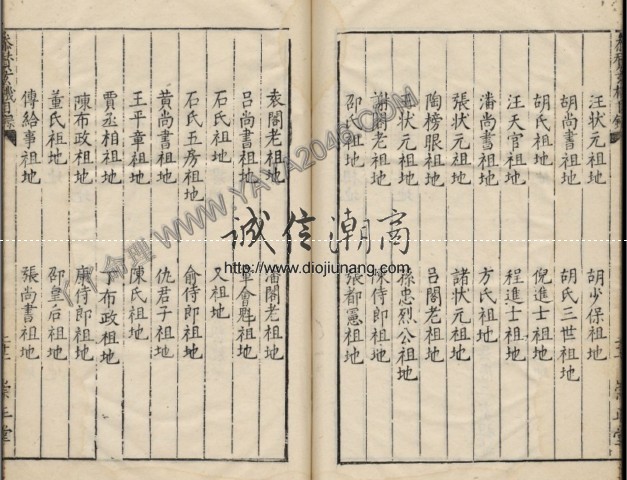 汪狀元祖地 胡少保祖地
胡尚書祖地 胡氏三世祖地
胡氏祖地 倪進士祖地
汪天官祖地 程進士祖地
潘尚書祖地 方氏祖地
張狀元祖地 諸狀元祖地
陶榜眼祖地 呂閣老祖地
狀元祖地 孫忠烈公祖地
謝閣老祖地 陳侍郎祖地
邵祖地 張都憲祖地
袁閣老祖地 潘閣老祖地
呂尚書祖地 單會魁祖地
石氏祖地 又祖地
石氏五房祖地 俞侍郎祖地
黃尚書祖地 仇君子祖地
王平章祖地 陳氏祖地
賈丞相祖地 丁布政祖地
陳布政祖地 康侍郎祖地
董氏祖地 邵皇后祖地
傳給事祖地 張尚書祖地
崇正堂
诚信潮商
http://www.diojiunang.com
丫丫命理 WWW.YAYA2046.COM